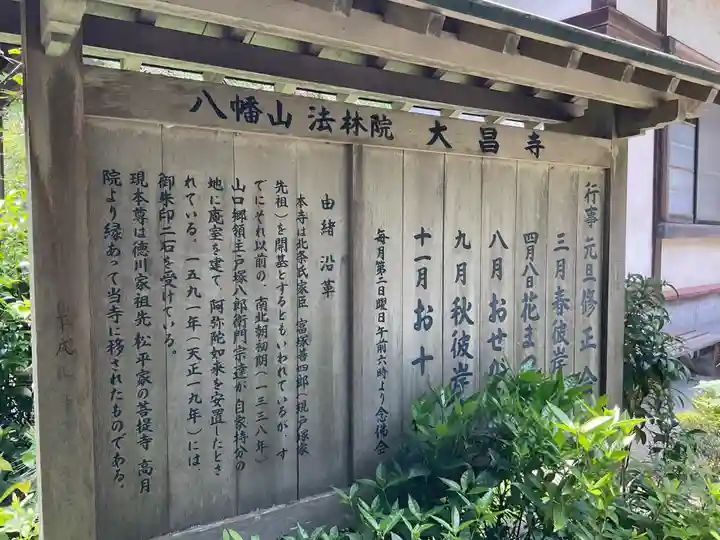 八幡山 法林院 大昌寺
行事 元旦修正会
三月 春彼岸
四月八日 花まつ
八月 おせが
九月 秋彼岸
十一月 お十
毎月第二日曜日午前六時より念佛会
由緒沿革
本寺は北条氏家臣 富塚善四郎(現戸塚家
先祖)を開基とするともいわれているが、す
でにそれ以前の、南北朝初期(一三三八年)
山口郷領主戸塚八郎衛門宗達が自家持分の
地に庵室を建て、阿弥陀如来を安置したとさ
れている。一五九一年(天正一九年)には、
御朱印二石を受けている。
現本尊は徳川家祖先 松平家の菩提寺 高月
院より縁あって当寺に移されたものである。
平成